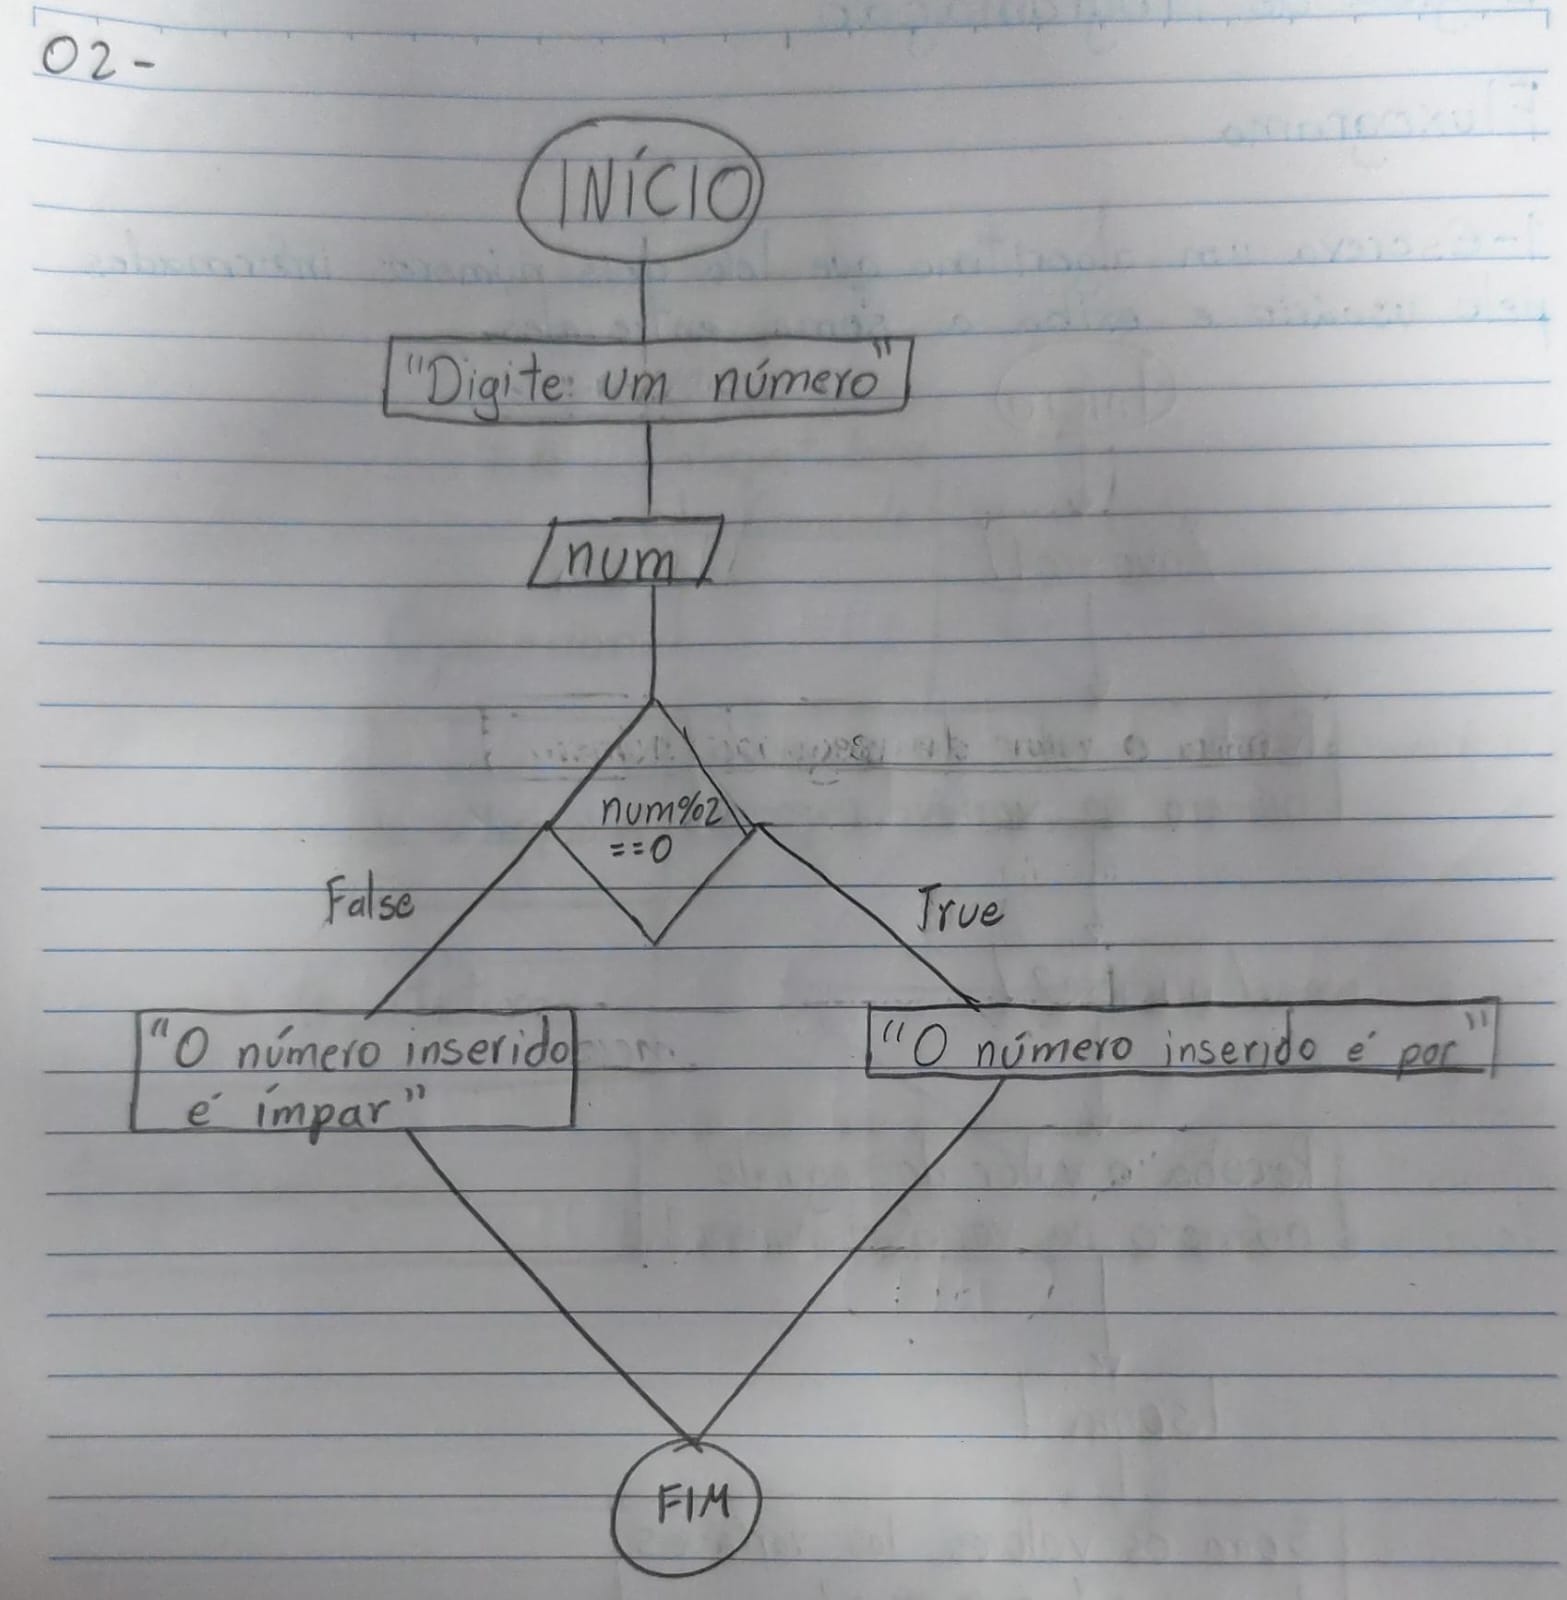 02-
INÍCIO
"Digite: um número"
num
num%2
==0
False
True
"O número inserido
é ímpar"
"O número inserido é par"
FIM